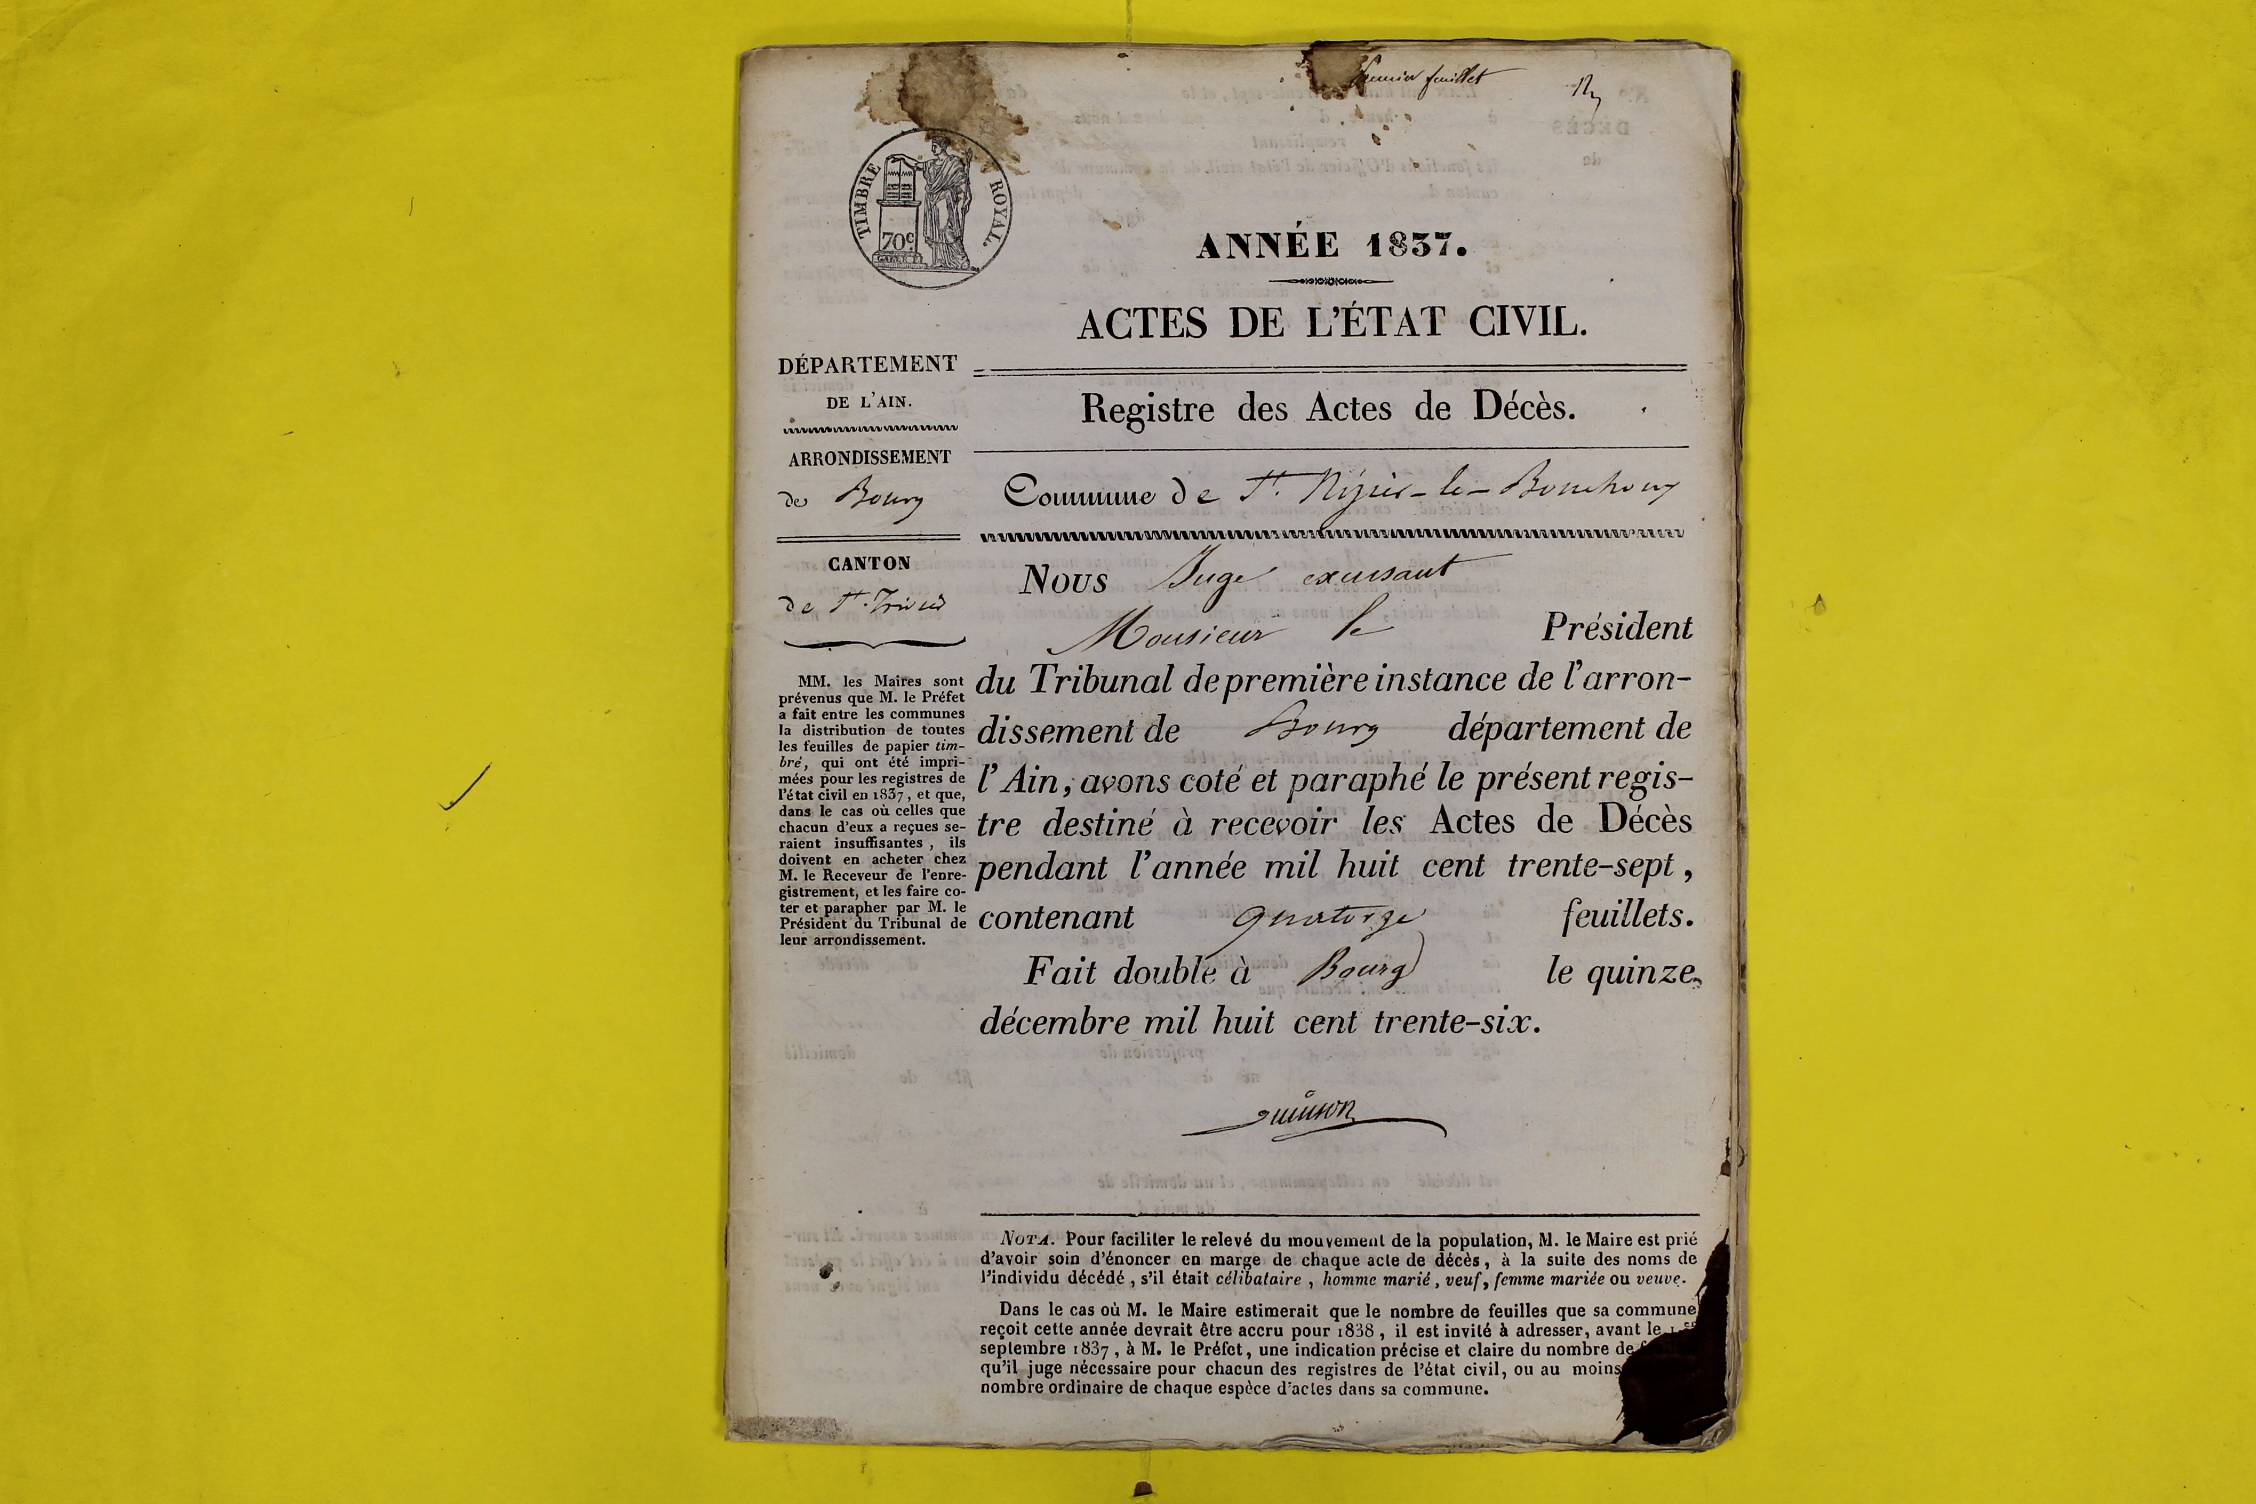 Premier feuillet
TIMBRE ROYAL.
70c
ANNÉE 1837.
ACTES DE L'ÉTAT CIVIL.
DÉPARTEMENT
DE L'AIN.
ARRONDISSEMENT
de Bourg
CANTON
de St. Trivier
MM. les Maires sont
prévenus que M. le Préfet
a fait entre les communes
la distribution de toutes
les feuilles de papier tim-
bré, qui ont été impri-
mées pour les registres de
l'état civil en 1837, et que,
dans le cas où celles que
chacun d'eux a reçues se-
raient insuffisantes, ils
doivent en acheter chez
M. le Receveur de l'enre-
gistrement, et les faire co-
ter et parapher par M. le
Président du Tribunal de
leur arrondissement.
Registre des Actes de Décès.
Commune de St. Nizier-le-Bouchoux
Nous Juge excusant
Monsieur le Président
du Tribunal de première instance de l'arron-
dissement de Bourg département de
l'Ain, avons coté et paraphé le présent regis-
tre destiné à recevoir les Actes de Décès
pendant l'année mil huit cent trente-sept,
contenant quatorze feuillets.
Fait double à Bourg le quinze
décembre mil huit cent trente-six.
NOTA. Pour faciliter le relevé du mouvement de la population, M. le Maire est prié
d'avoir soin d'énoncer en marge de chaque acte de décès, à la suite des noms de
l'individu décédé, s'il était célibataire, homme marié, veuf, femme mariée ou veuve.
Dans le cas où M. le Maire estimerait que le nombre de feuilles que sa commune
reçoit cette année devrait être accru pour 1838, il est invité à adresser, avant le 1er
septembre 1837, à M. le Préfet, une indication précise et claire du nombre de
qu'il juge nécessaire pour chacun des registres de l'état civil, ou au moins
nombre ordinaire de chaque espèce d'actes dans sa commune.